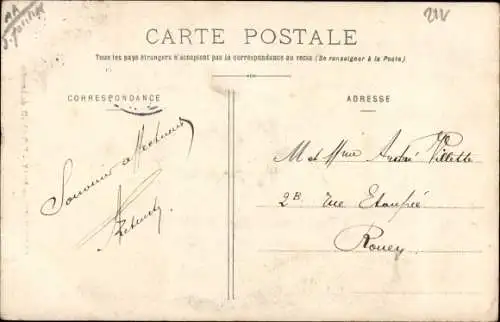 CARTE POSTALE
Tous les pays étrangers n'acceptent pas la correspondance au recto (Se renseigner à la Poste).
CORRESPONDANCE
ADRESSE
Souvenir affectueux
M et Mme André Villette
2B rue Etoupée
Rouen